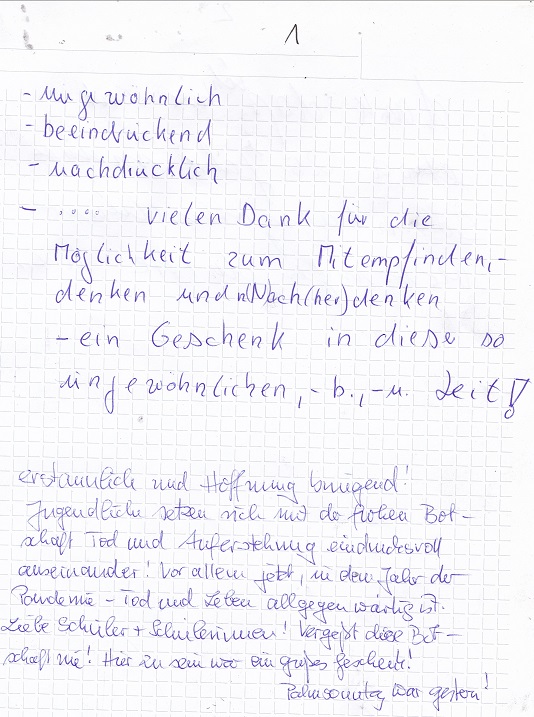 1
- ungewöhnlich
- beeindrückend
- nachdrücklich
- .... vielen Dank für die
Möglichkeit zum Mitempfinden,-
denken und n(Nach(her)denken
- ein Geschenk in diese so
ungewöhnlichen, - b., - n. Zeit!
erstaunlich und Hoffnung bringend!
Jugendliche setzen sich mit der frohen Bot-
schaft Tod und Auferstehung eindrucksvoll
auseinander! Vor allem jetzt, in dem Jahr der
Pandemie - Tod und Leben allgegenwärtig ist.
Liebe Schüler + Schülerinnen! Vergeßt diese Bot-
schaft nie! Hier zu sein war ein großes Geschenk!
Palmsonntag war gestern!